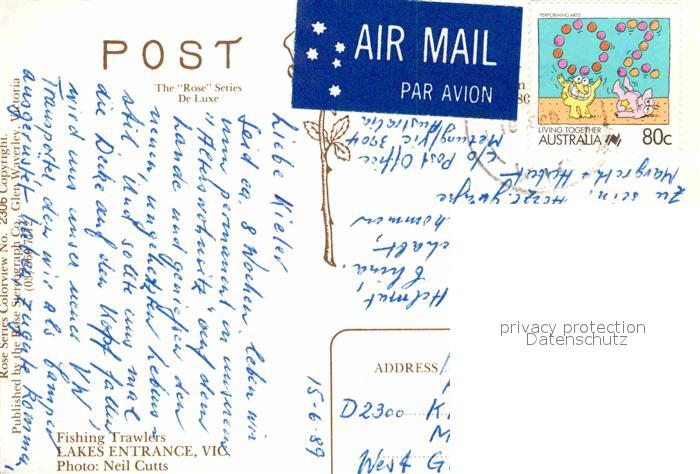 POST
The "Rose" Series
De Luxe
AIR MAIL
PAR AVION
PERFORMING ARTS
LIVING TOGETHER
AUSTRALIA 80c
Liebe Kieler
Seid ca. 8 Wochen leben wir
nun permanent in unserem
"Alterswohnsitz" auf dem
Lande und genießen den
neuen ungehetzten Lebens-
stil. Und sollte uns mal
die Decke auf den Kopf fallen
wird uns unser neuer VW
Transporter, den wir als Camper
ausgerüstet haben, zugute kommen,
Margreth + Herbert
c/o Post Office
Metung/Vic 3904
Australia
kommen
China.
Helmut,
15-6-89
ADDRESS
D2300 K
M
West G
Fishing Trawlers
LAKES ENTRANCE, VIC.
Photo: Neil Cutts
Rose Series Colorview No. 2306 Copyright.
Published by the Rose Stereograph Co., Glen Waverley, Victoria
privacy protection
Datenschutz